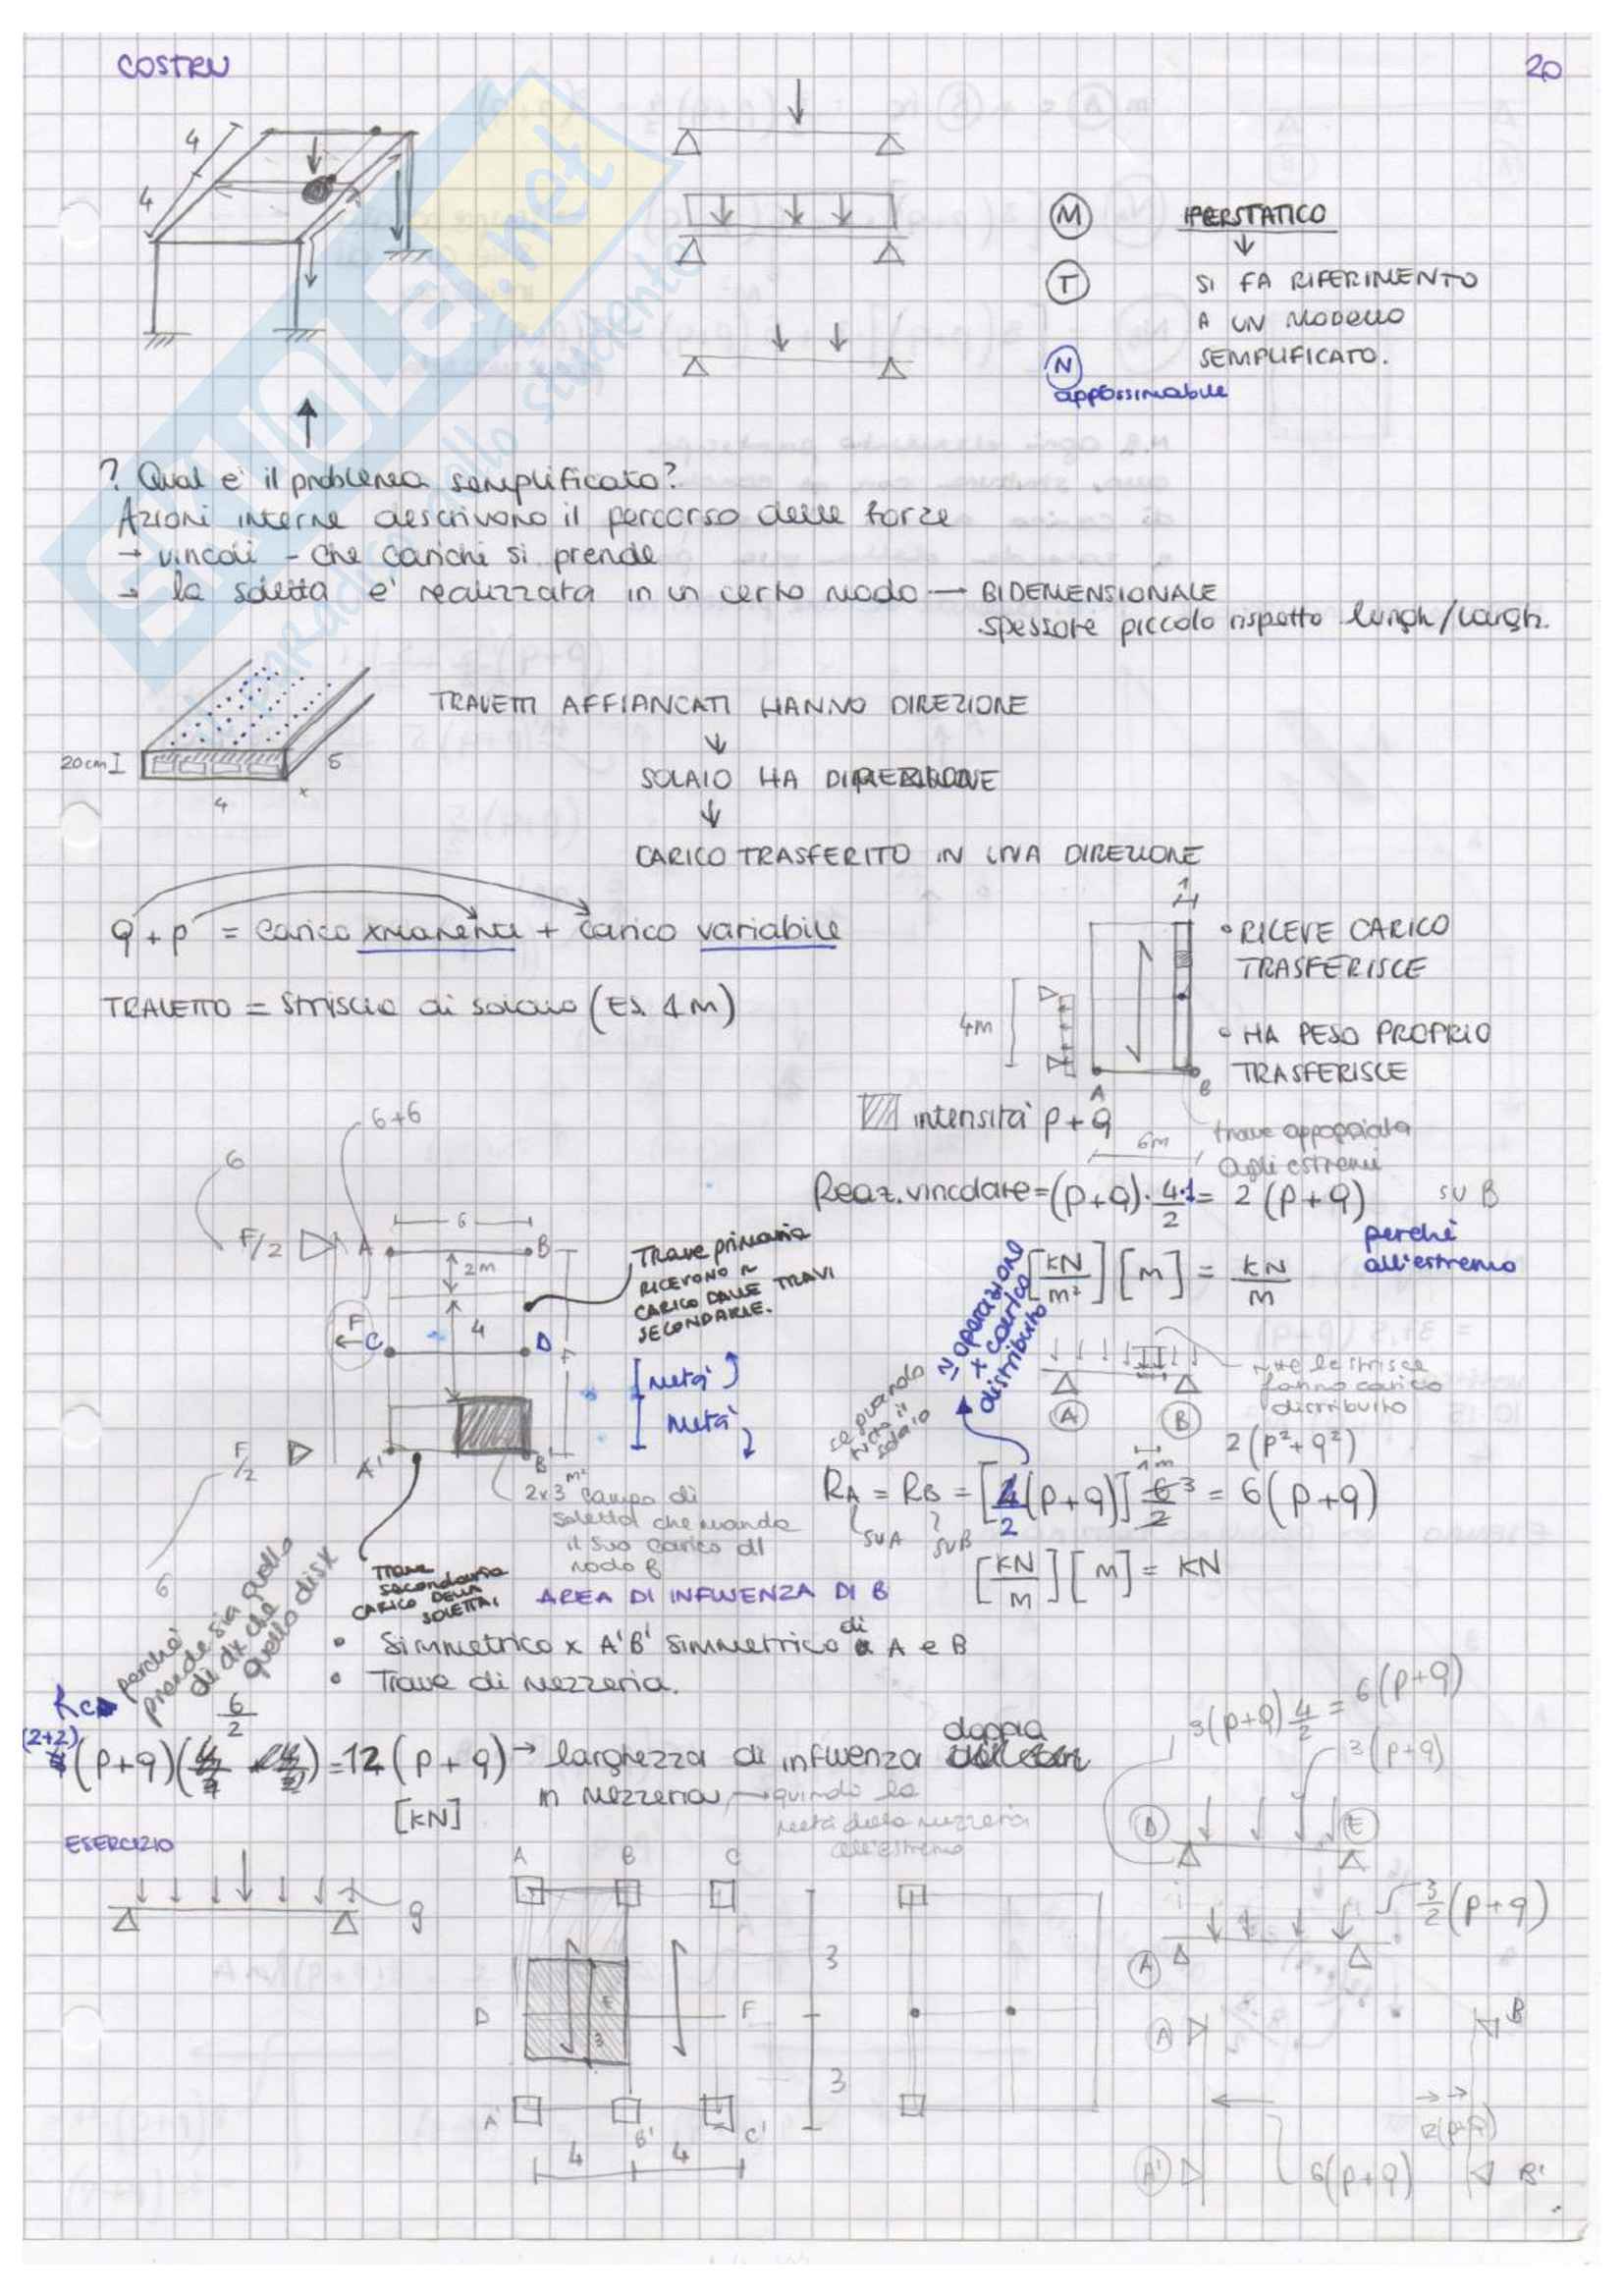 COSTRU
20
4
4
M
IPERSTATICO
T
SI FA RIFERIMENTO
A UN MODELLO
SEMPLIFICATO.
N
appossimabile
? Qual e' il problema semplificato?
Azioni interne descrivono il percorso delle forze
→ vincoli - che carichi si prende
→ la soletta e' realizzata in un certo modo → BIDEMENSIONALE
spessore piccolo rispetto lungh/largh.
TRAVETTI AFFIANCATI HANNO DIREZIONE
20cm
5
4
x
SOLAIO HA DIREZIONE
CARICO TRASFERITO IN UNA DIREZIONE
q + p = carico xmanente + carico variabile
TRAVETTO = striscia di solaio (ES. 1M)
1
• RICEVE CARICO
TRASFERISCE
4M
• HA PESO PROPRIO
TRASFERISCE
A
B
intensità p + q
6m
trave appoggiata
agli estremi
6+6
6
Reaz. vincolare = (p+q) · 4·1/2 = 2 (p+q) su B
perchè
all'estremo
[kN/m²] [m] = kN/m
F/2
A
6
B
2m
Trave primaria
RICEVONO IL
CARICO DALLE TRAVI
SECONDARIE.
F
C
4
D
[metà]
[metà]
F/2
A'
B'
6
≃ operazione
x carico
distribuito
tutte le strisce
fanno carico
distribuito
A
B
2(p²+q²)
1m
RA = RB = [4/2 (p+q)] 6/2 3 = 6(p+q)
su A
su B
[kN/m] [m] = kN
2x3 m² campo di
soletta che manda
il suo carico al
nodo B
AREA DI INFLUENZA DI B
Trave
secondaria
CARICO DELLA
SOLETTA
• Simmetrico x A'B' simmetrico di A e B
• Trave di mezzeria.
perchè
prende sia quello
di dx che
quello di sx
Rc
6/2
(2+2)
(p+q) = 12 (p+q) → larghezza di influenza doppia
in mezzeria → quindi la
metà della mezzeria
all'estremo
[kN]
3(p+q) 4/2 = 6(p+q)
3(p+q)
D
E
ESERCIZIO
q
A
B
C
3/2 (p+q)
A
3
D
E
F
3
3
A
B
A'
B'
C'
4
4
A'
6(p+q)
B'